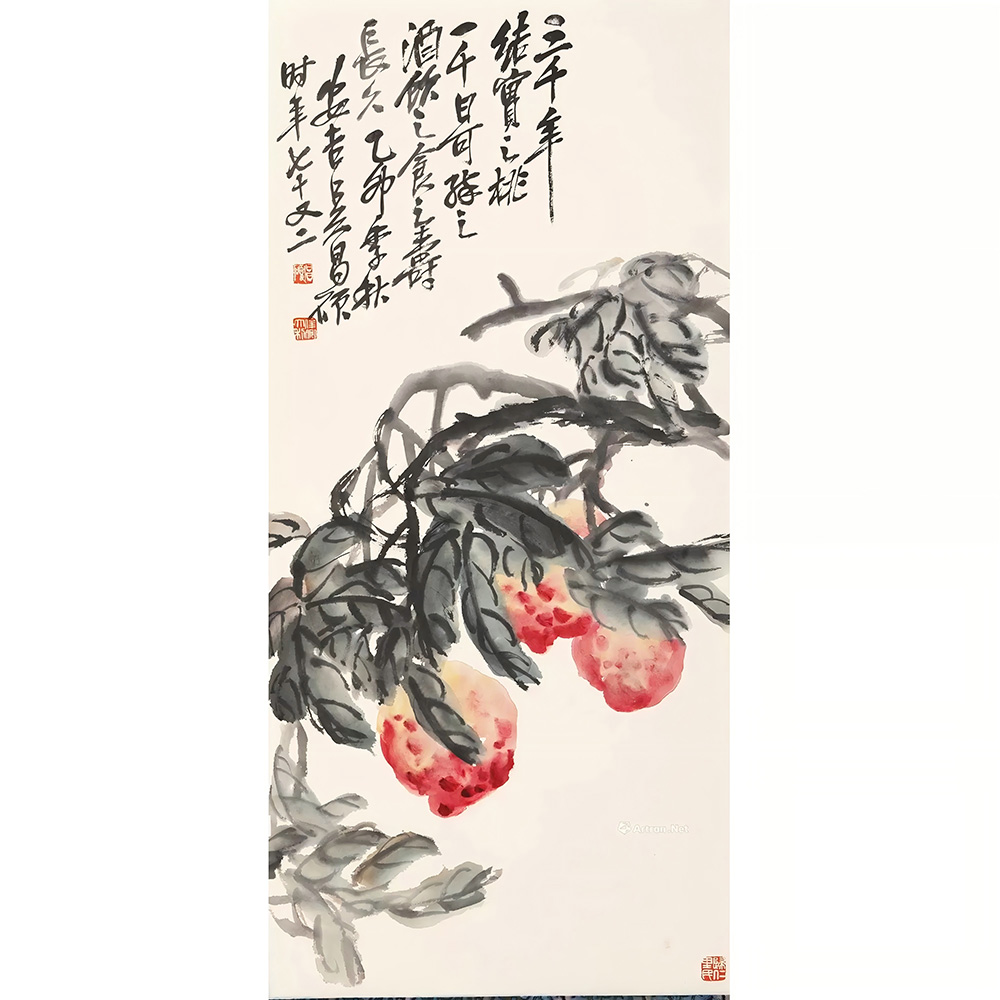 三千年
結實之桃
一千日可醉之
酒飲之食之壽
長久乙卯季秋
安吉吳昌碩
时年七十又二
Artron.Net